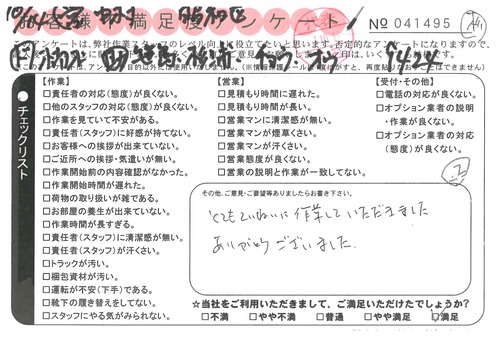 お客様 満足度アンケート
No 041495
アンケートは、弊社作業スタッフのレベル向上に役立てたいと思います。否定的なアンケートになりますので、
9424
チェックリスト
【作業】
□責任者の対応(態度)が良くない。
□他のスタッフの対応(態度)が良くない。
□作業を見ていて不安がある。
□責任者(スタッフ)に好感が持てない。
□お客様への挨拶が出来ていない。
□ご近所への挨拶・気遣いが無い。
□作業開始前の内容確認がなかった。
□作業開始時間が遅れた。
□荷物の取り扱いが雑である。
□お部屋の養生が出来ていない。
□作業時間が長すぎる。
□責任者(スタッフ)に清潔感が無い。
□責任者(スタッフ)が汗くさい。
□トラックが汚い。
□梱包資材が汚い。
□運転が不安(下手)である。
□靴下の履き替えをしてない。
□スタッフにやる気がみられない。
【営業】
□見積もり時間に遅れた。
□見積もり時間が長い。
□営業マンに清潔感が無い。
□営業マンが煙草くさい。
□営業マンが汗くさい。
□営業態度が良くない。
□営業の説明と作業が一致してない。
【受付・その他】
□電話の対応が良くない。
□オプション業者の説明
・作業が良くない。
□オプション業者の対応
(態度)が良くない。
その他、ご意見・ご要望等ありましたらお書き下さい。
とてもていねいに作業していただきました
ありがとうございました。
☆当社をご利用いただきまして、ご満足いただけたでしょうか?
□不満 □やや不満 □普通 □やや満足 □満足